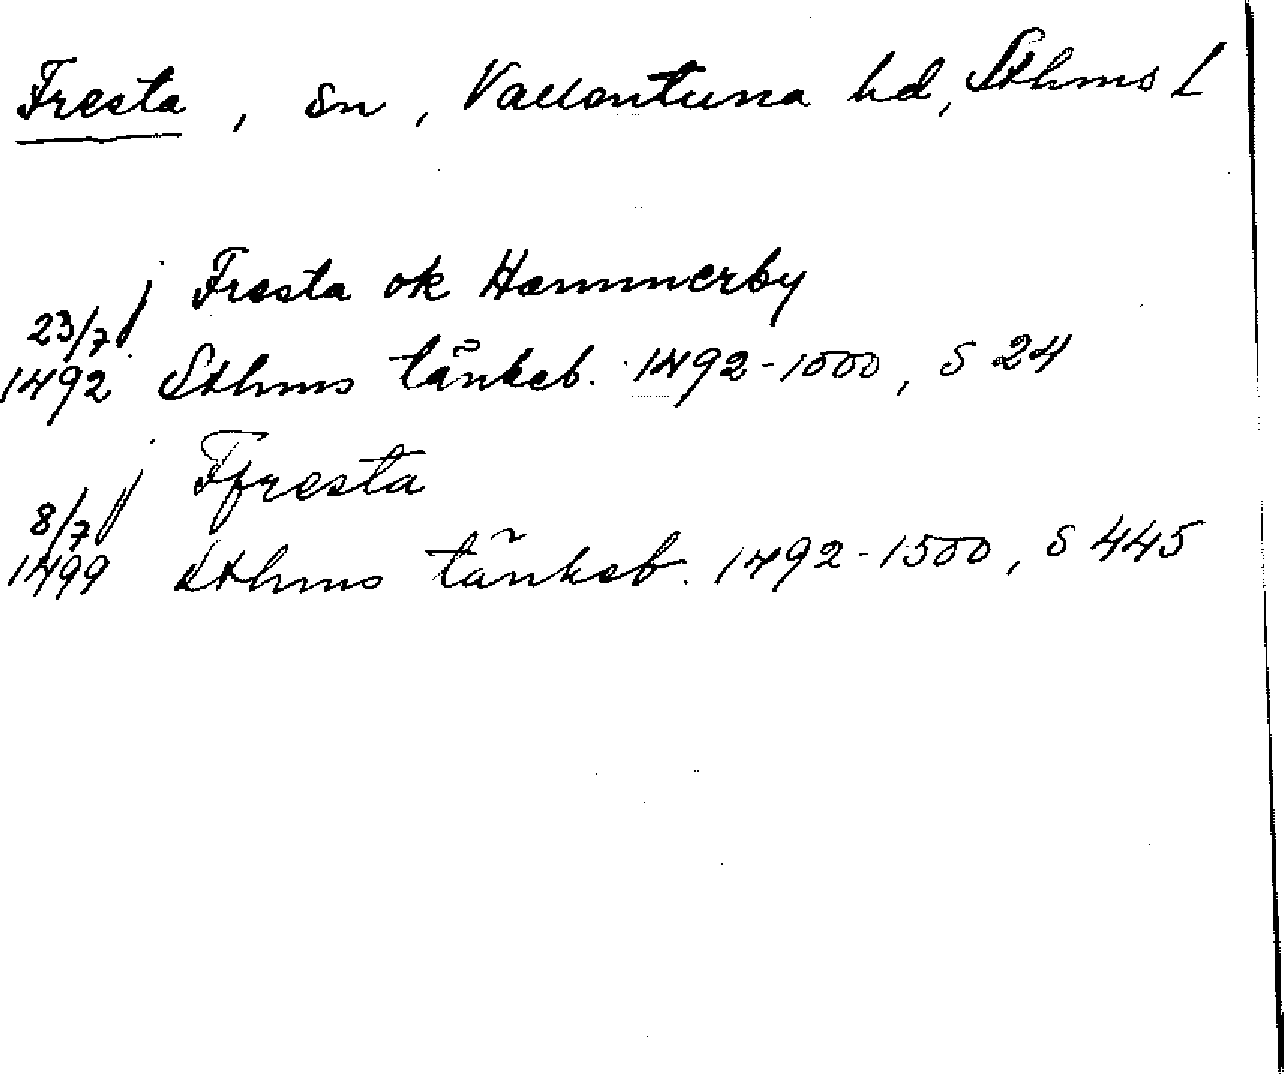 Fresta, sn, Vallentuna hd, Sthms L
j Fresta ok Hammerby
23/7
1492 Sthms tänkeb. 1492-1500, s 24
j Ffresta
8/7
1499 Sthms tänkeb. 1492-1500, s 445